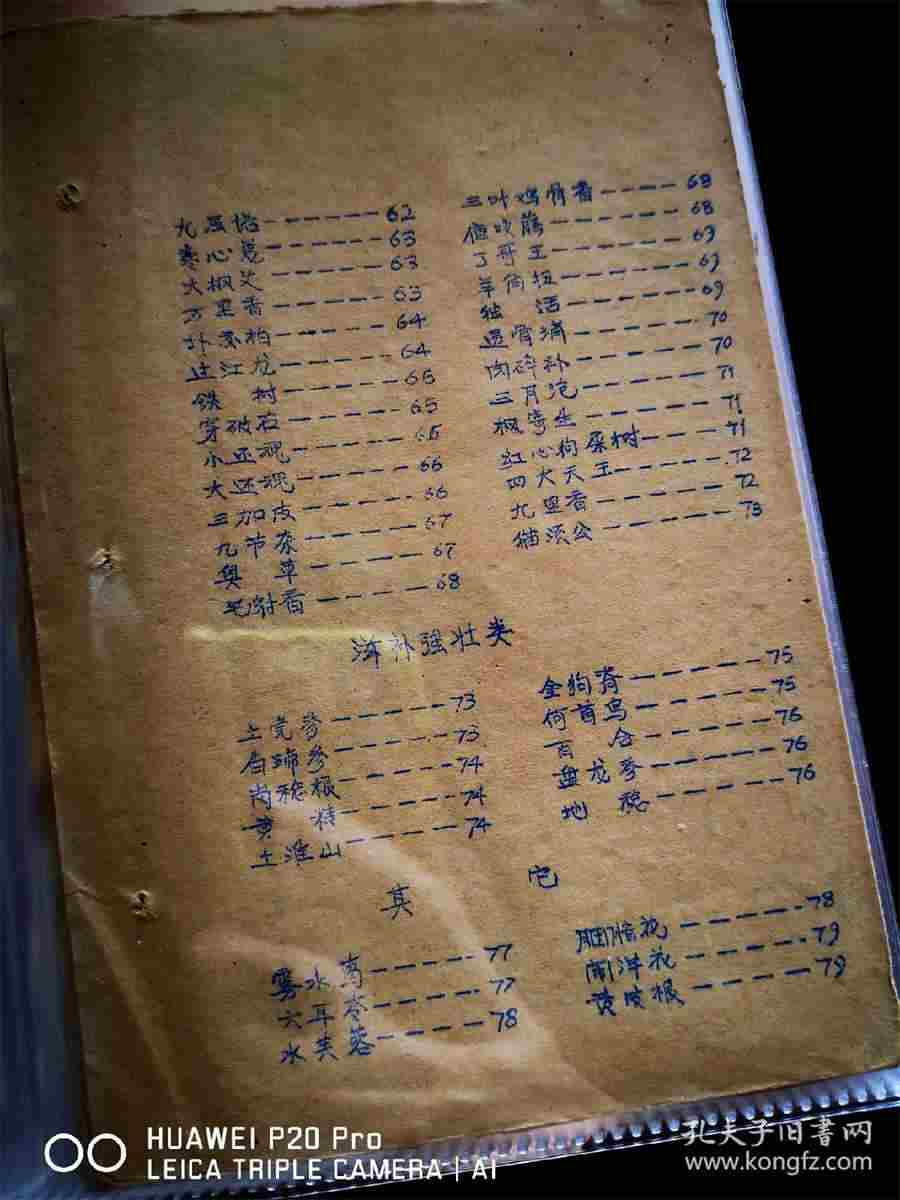 九层塔------62
寒心葱------63
大枫艾------63
万里香------63
扑香柏------64
过江龙------64
铁 树------65
穿破石------65
小还魂------65
大还魂------66
三加皮------66
九节茶------67
臭 草------67
毛射香------68
三叶鸡骨香------68
假吹藤------68
丁哥王------69
羊角扭------69
独 活------69
透骨消------70
肉碎补------70
三月泡------71
枫寄生------71
红心狗屎树------71
四大天王------72
九里香------72
猫须公------73
滋补强壮类
土党参------73
白蹄参------73
岗稔根------74
黄 精------74
土淮山------74
金狗脊------75
何首乌------75
百 合------76
盘龙参------76
地 稔------76
其 它
雾水葛------77
六耳苓------77
水芙蓉------78
胭脂花------78
闹洋花------79
黄皮根------79
HUAWEI P20 Pro
LEICA TRIPLE CAMERA | AI
孔夫子旧书网
www.kongfz.com